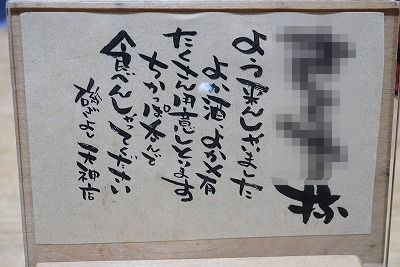 様
よう来んしゃいました
よか酒 よか肴
たくさん用意しとります
ちかっぱ飲んで
食べんしゃってください
磯ぎよし 天神店